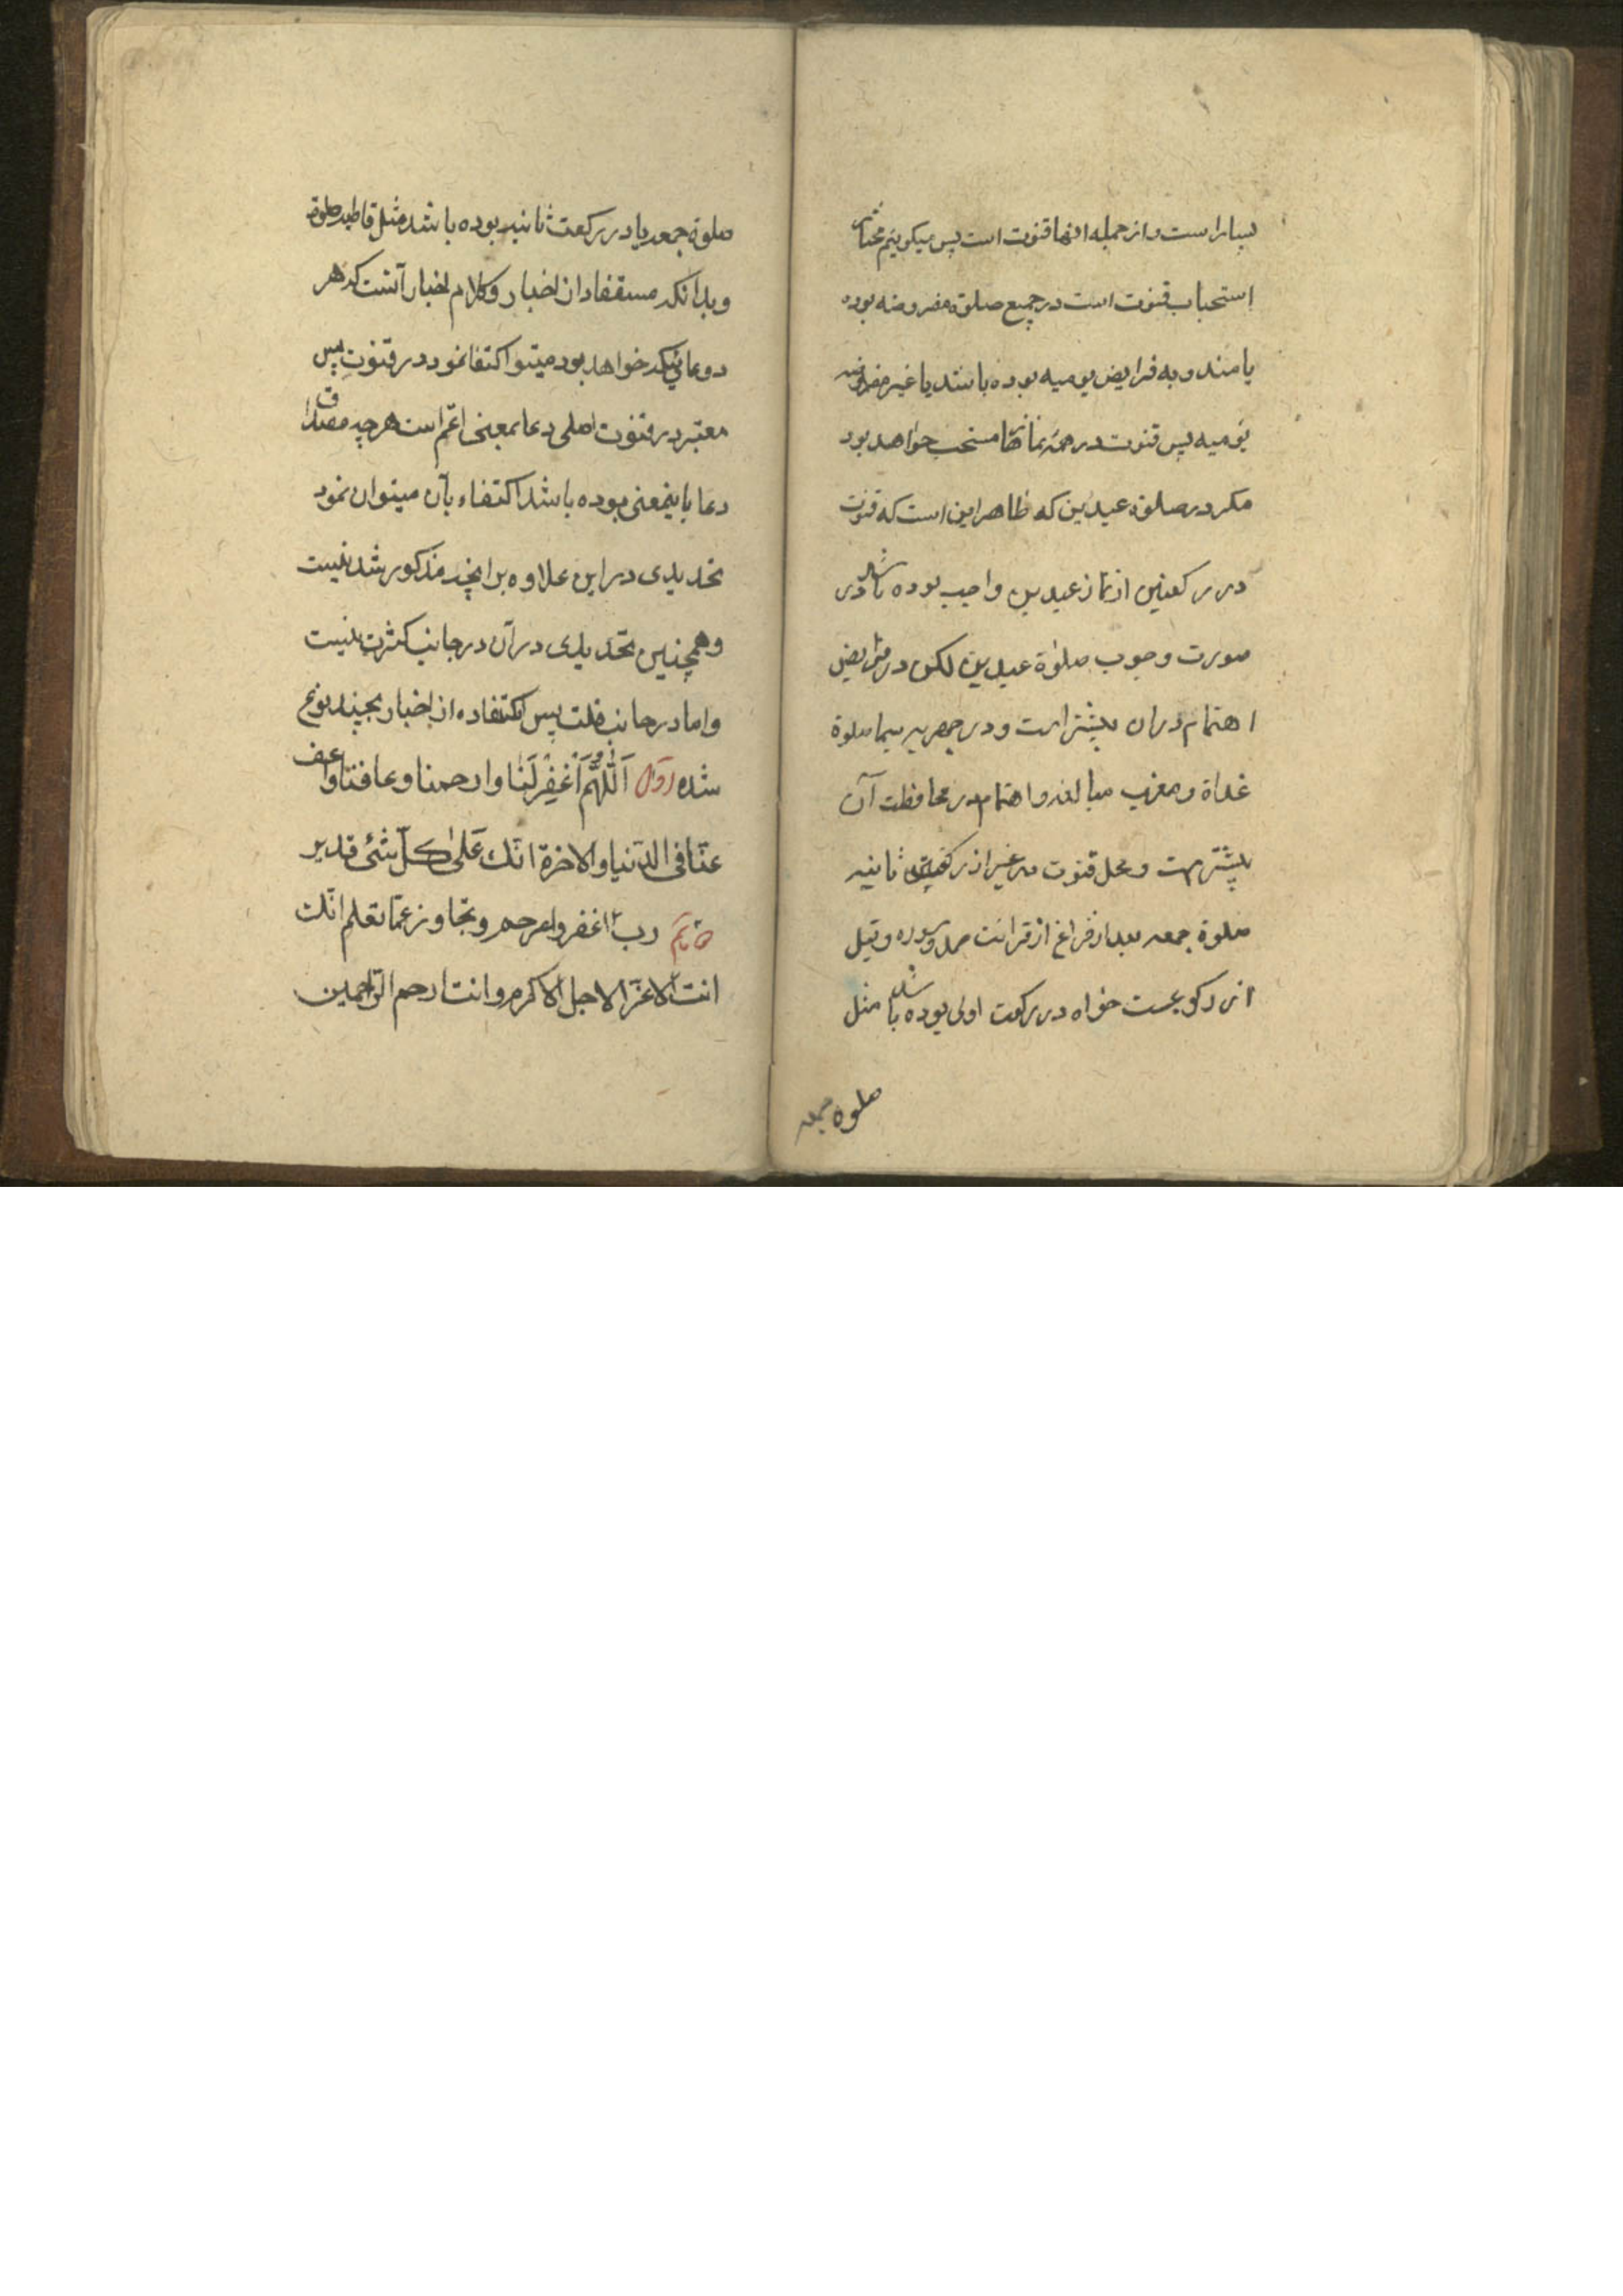 بسیار است و از جمله انها قنوت است پس میکوییم مختار
استحباب قنوت است در جمیع صلوة مفروضه بوده
یا مندوبه فرایض یومیه بوده باشد یا غیر مفروضه
یومیه پس قنوت در همه نمازها مستحب خواهد بود
مکر در صلوة عیدین که ظاهر این است که قنوت
در رکعتین از نماز عیدین واجب بوده باشد در
صورت وجوب صلوة عیدین لکن در فرایض
اهتمام دران بیشتر است و در جهریه سیما صلوة
غداة و مغرب مبالغه و اهتمام در محافظت آن
بیشتر است و محل قنوت در غیر از رکعت ثانیه
صلوة جمعه بعد از فراغ از قرائت حمد و سوره و قبل
از رکوعست خواه در رکعت اولی بوده باشد مثل
صلوة جمعه
صلوة جمعه یا در رکعت ثانیه بوده باشد مثل قاطبه صلوة
و بدانکه مستفاد از اخبار و کلام اخبار آنست که هر
دوعائیکه خواهد بود میتو اکتفا نمود در قنوت پس
معتبر در قنوت اصلی دعا بمعنی اعم است هر چه مصداق
دعا باینمعنی بوده باشد اکتفاء بآن میتوان نمود
تحدیدی در این علاوه بر انچه مذکور شد نیست
و همچنین تحدیدی در آن در جانب کثرت نیست
و اما در جانب قلت پس مستفاده از اخبار بچند نوع
شده اول اَللّٰهُمَّ اَغْفِرْ لَنٰا وارحمنا وعافنا واعف
عنّا فی الدّنیا والاخرة انّك عَلىٰ كلّ شئ قدیر
رب اغفر وارحم وتجاوز عمّا تعلم انّك
انت الاعزّ الاجل الاکرم وانت ارحم الرّاحمین